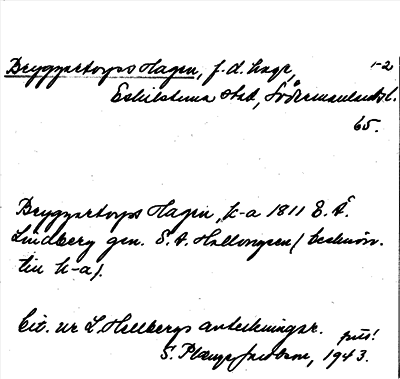 Bryggartorps Hagen, f.d. hage, 1-2
Eskilstuna stad, Södermanlands l.
65.
Bryggartorps Hagen, k-a 1811 E. Å.
Lindberg gm. S. A. Hallongren (beskrivn.
till k-a).
Cit. ur L. Hellbergs anteckningar.
S. 1943.